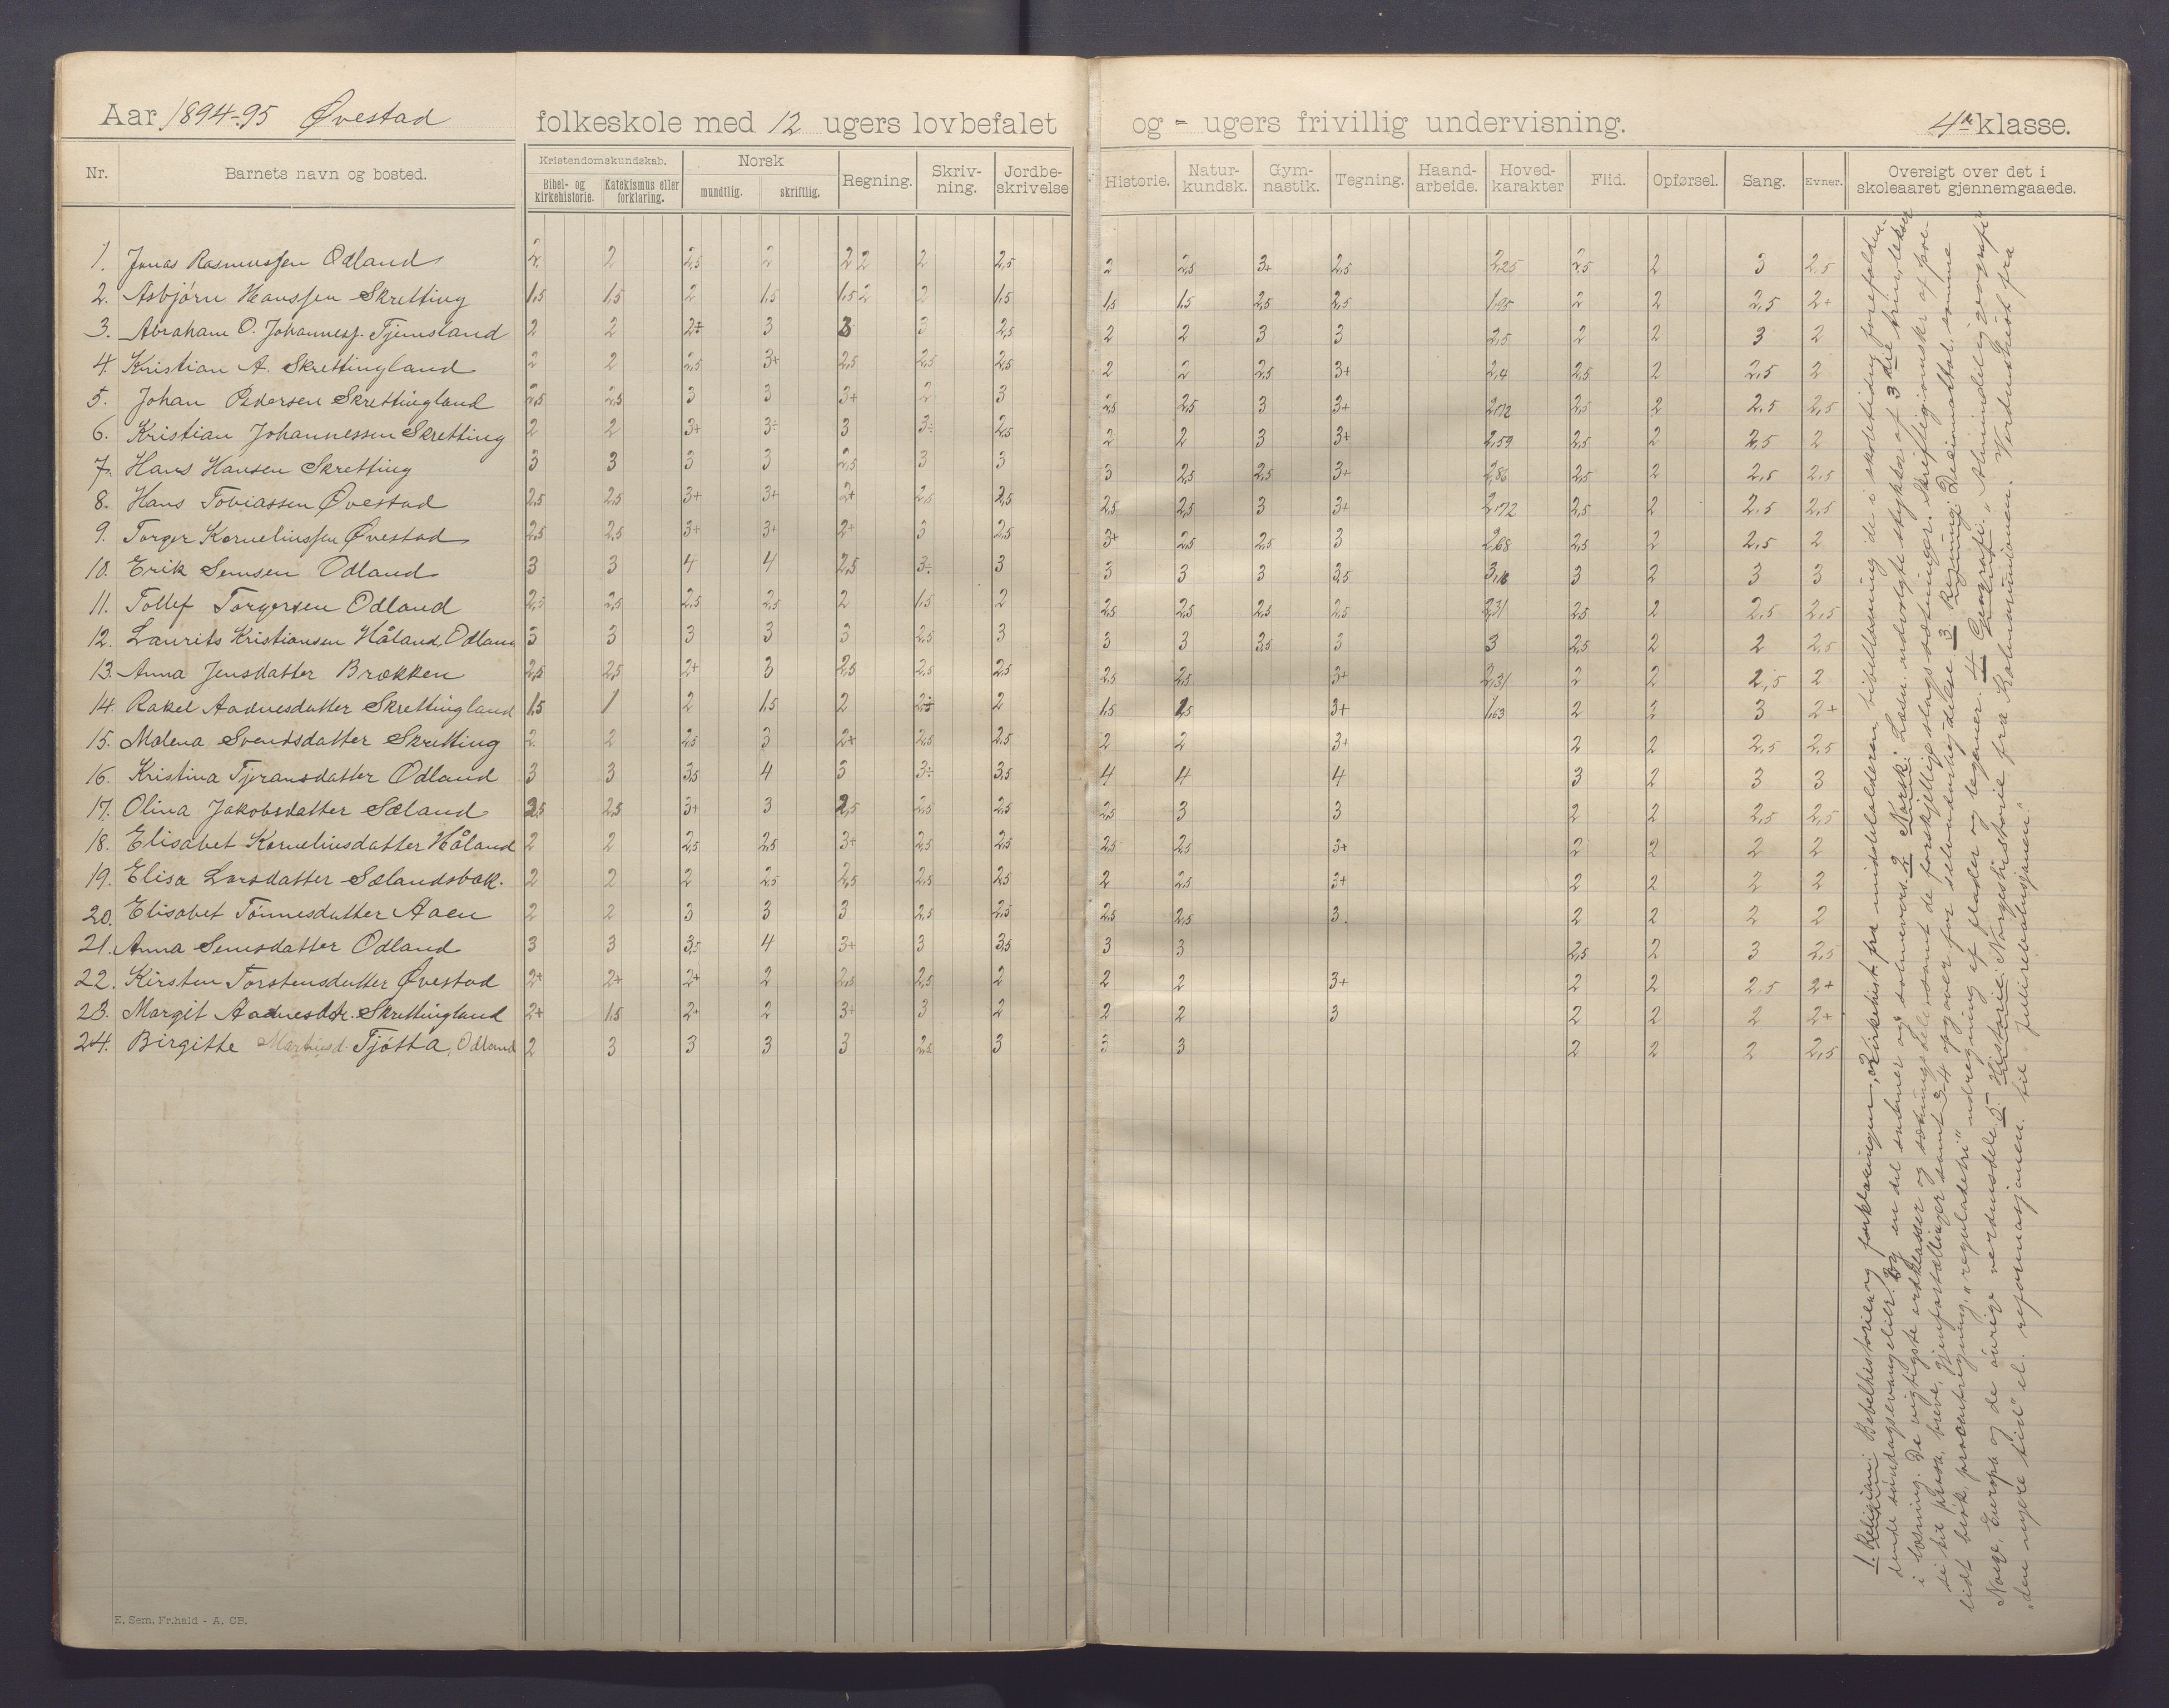 Aar 1894-95 Øvestad folkeskole med 12 ugers lovbefalet og - ugers frivillig undervisning. 4de klasse.
Nr. Barnets navn og bosted. Kristendomskundskab. Bibel- og kirkehistorie. Katekismus eller forklaring. Norsk mundtlig. skriftlig. Regning. Skriv-ning. Jordbe-skrivelse Historie. Natur-kundsk. Gym-nastik. Tegning. Haand-arbeide. Hoved-karakter Flid. Opførsel. Sang. Evner. Oversigt over det i skoleaaret gjennemgaaede.
1. Jonas Rasmussen Odland 2 2 2,5 2 2 2 2 2,5 2 2,5 3+ 2,5 2,25 2,5 2 3 2,5
2. Asbjørn Hanssen Skretting 1,5 1,5 2 1,5 1,5 2 2 1,5 1,5 1,5 2,5 2,5 1,95 2 2 2,5 2+
3. Abraham O. Johannesf. Tjemsland 2 2 2÷ 3 3 3 2,5 2 2 3 3 2,5 2 2 3 2
4. Kristian A. Skrettingland 2 2 2,5 3+ 2,5 2,5 2,5 2 2 2,5 3+ 2,4 2,5 2 2,5 2
5. Johan Pedersen Skrettingland 2,5 2,5 3 3 3+ 2 3 2,5 2,5 3 3+ 2,72 2,5 2 2,5 2,5
6. Kristian Johannessen Skretting 2 2 3+ 3÷ 3 3÷ 2,5 2 2 3 3+ 2,59 2,5 2 2,5 2
7. Hans Hansen Skretting 3 3 3 3 2,5 3 3 3 2,5 2,5 3+ 2,86 2,5 2 2,5 2,5
8. Hans Tobiassen Øvestad 2,5 2,5 3+ 3+ 2+ 2,5 2,5 2,5 2,5 3 3+ 2,72 2,5 2 2,5 2,5
9. Torger Korneliussen Øvestad 2,5 2,5 3+ 3+ 2+ 3 2,5 3+ 2,5 2,5 3 2,68 2,5 2 2,5 2
10. Erik Semsen Odland 3 3 4 4 2,5 3÷ 3 3 3 3 3,5 3,18 3 2 3 3
11. Tollef Torgersen Odland 2,5 2,5 2,5 2,5 2 1,5 2 2,5 2,5 2,5 2,5 2,31 2,5 2 2,5 2,5
12. Laurits Kristiansen Håland, Odland 3 3 3 3 3 2,5 3 3 3 3,5 3 3 2,5 2 2 2,5
13. Anna Jensdatter Brækken 2,5 2,5 2+ 3 2,5 2,5 2,5 2,5 2,5 3+ 2,31 2 2 2,5 2
14. Rakel Aadnesdatter Skrettingland 1,5 1 2 1,5 2 2÷ 2 1,5 1,5 3+ 1,63 2 2 3 2+
15. Malena Svendsdatter Skretting 2 2 2,5 3 2+ 2,5 2,5 2 2 3+ 2 2 2,5 2,5
16. Kristina Tjeransdatter Odland 3 3 3,5 4 3 3÷ 3,5 4 4 4 3 2 3 3
17. Olina Jakobsdatter Sæland 2,5 2,5 3+ 3 2,5 2,5 2,5 2,5 3 3 2 2 2,5 2,5
18. Elisabet Korneliusdatter Håland 2 2 2,5 2,5 3+ 2,5 2,5 2,5 2,5 3+ 2 2 2 2
19. Elisa Larsdatter Sælandsbak. 2 2 2 2,5 2,5 2,5 2,5 2 2,5 3+ 2 2 2 2
20. Elisabet Tønnesdatter Aaen 2 2 3 3 3 2,5 2,5 2,5 2,5 3. 2 2 2 2
21. Anna Semsdatter Odland 3 3 3,5 4 3+ 3 3,5 3 3 2,5 2 3 2,5
22. Kirsten Torstensdatter Øvestad 2+ 2+ 2+ 2 2,5 2,5 2 2 2 3+ 2 2 2,5 2+
23. Margit Aadnesdtr. Skrettingland 2+ 1,5 2+ 2 3+ 3 2 2 2 3 2 2 2 2+
24. Birgitte Martinsd. Tjøtta, Odland 2 3 3 3 3 2,5 3 3 3 2 2 2 2,5
1. Religion: Bibelhistorien og forklaringen, kirkehist. fra middelalderen, bibellæsning, de i skoletiden forefalden-
de søndagsevangelier og en del salmer og salmevers. 2 Norsk: Læsn. udvalgte stykker af 3die trin, leksær
i læsning. De vigtigste ordklasser og sætningsdele samt de forskjellige slags sætninger. Skriftlig: ønskr. af poe-
si til prosa, breve, gjenfortællinger samt 3-4 opgaver for selvudarbejdelse. 3 Regning: Decimaltal, samme
lidt brøk, procentregning, "reguladetri" udregning af flader og legemer. 4 Geografi: Almindelig geografi
Norge, Europa og de øvrige verdensdele. 5. Historie: Norgeshistorie fra Kalmarunionen. Verdenshist. fra
"den nyere tid" el. reformasjonen til julirevolusjonen.
E. Sem, Fr.hald - A. CB.